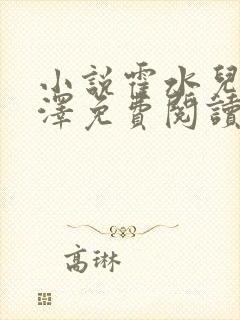 小說霍水兒
澤免費閱讀
高琳